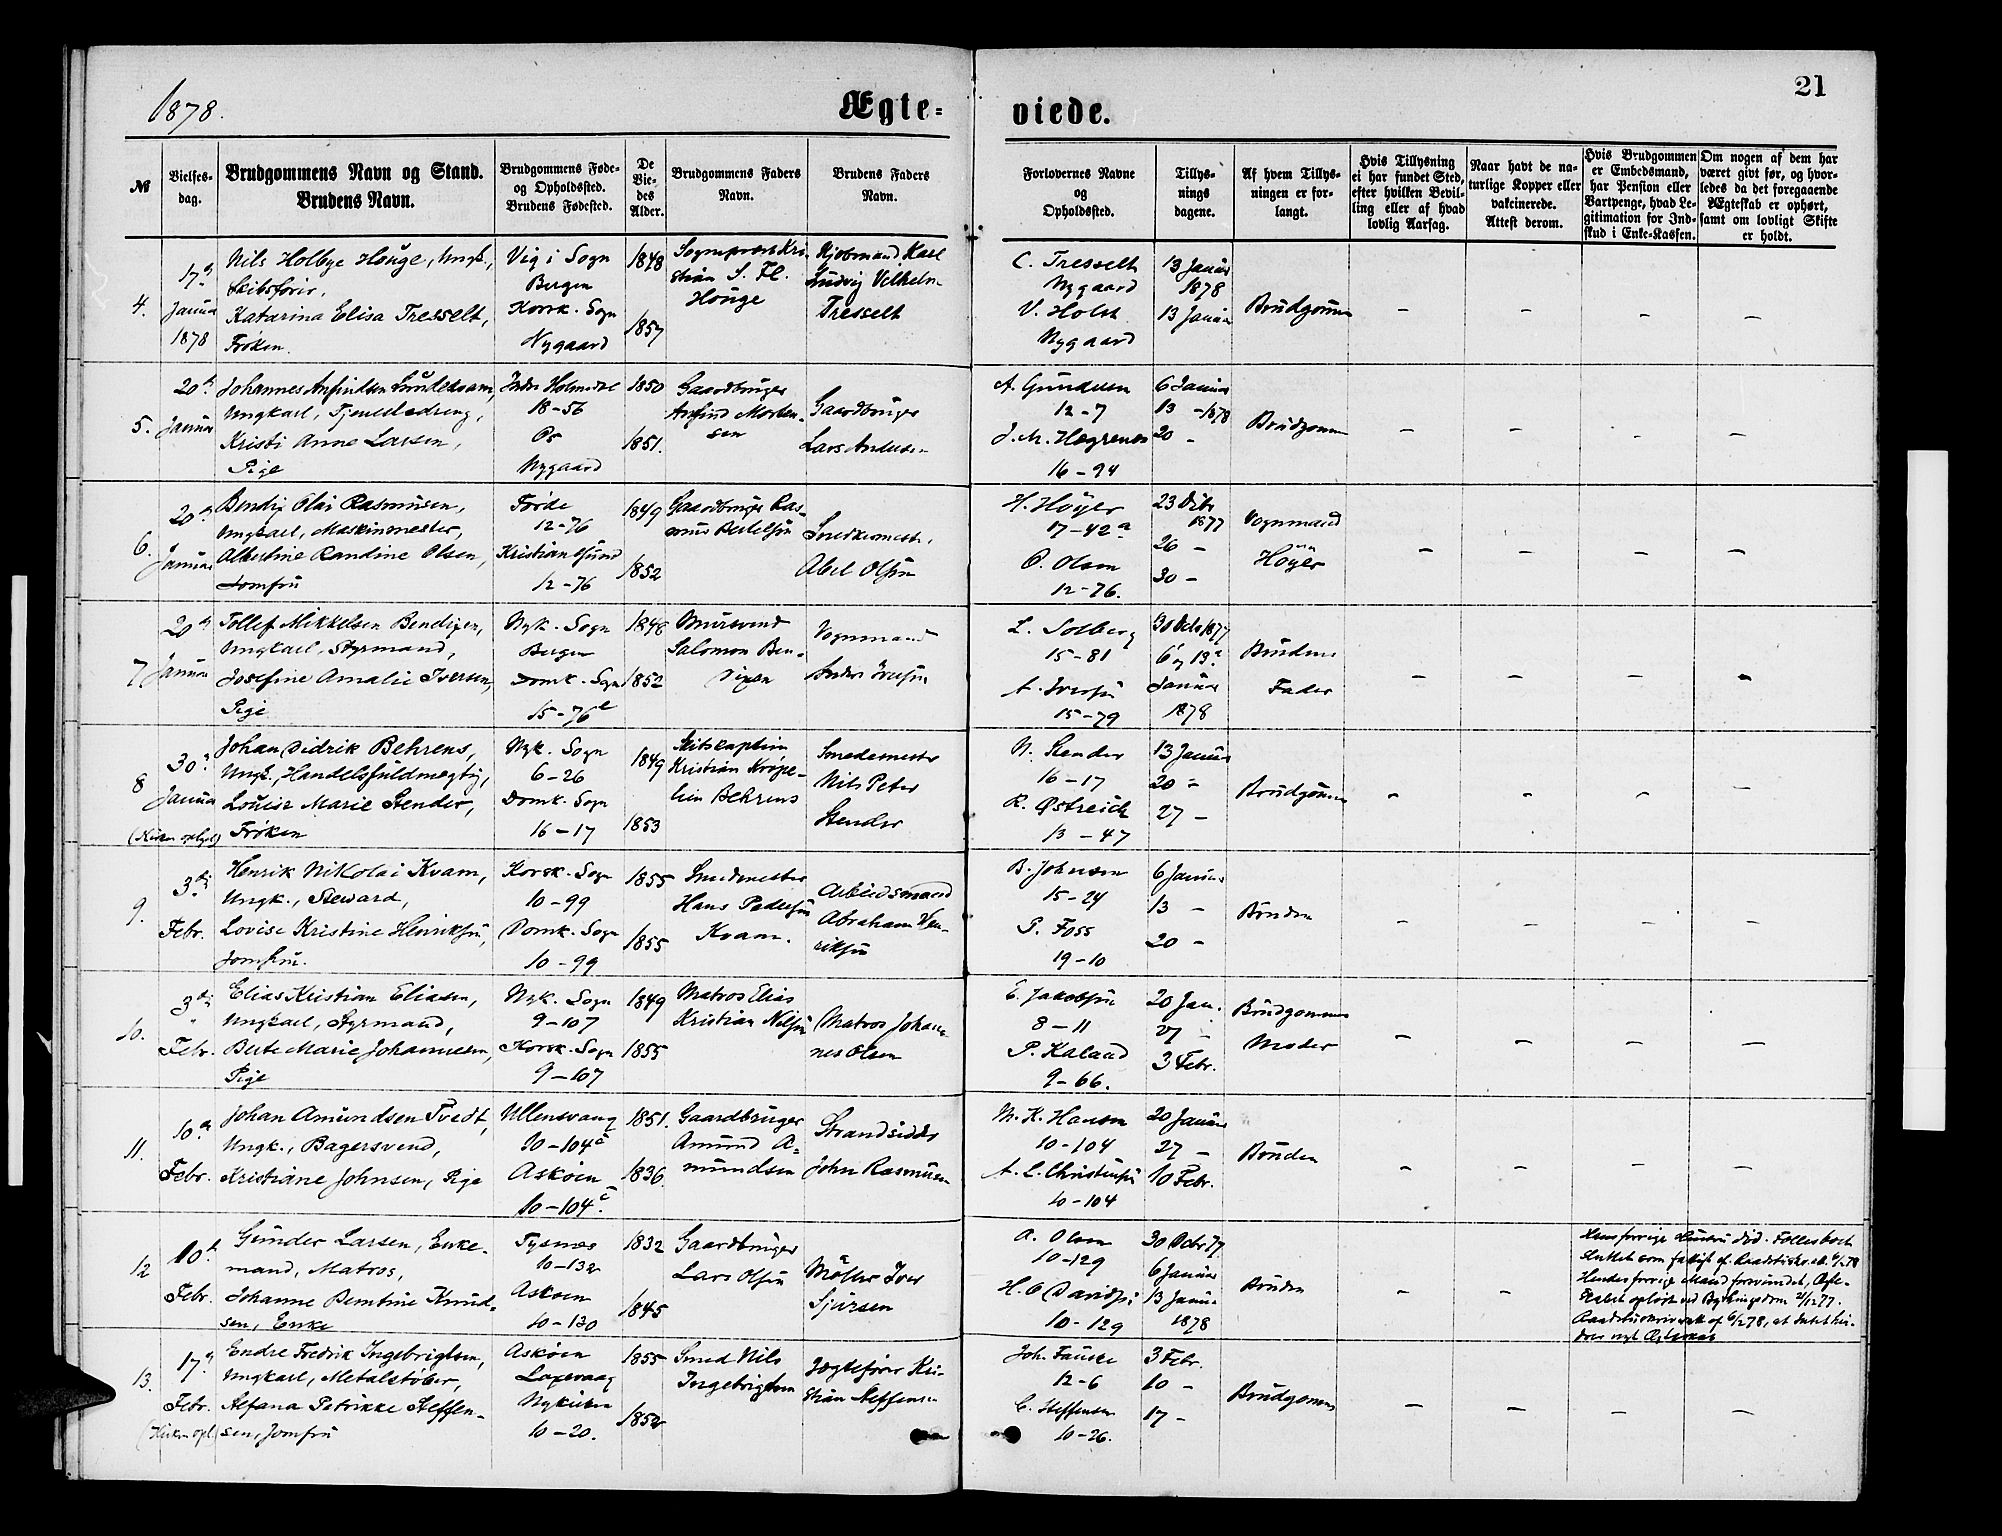 1878.
Ægte=
viede.
21
№
Vielses-
dag.
Brudgommens Navn og Stand.
Brudens Navn.
Brudgommens Føde-
og Opholdssted.
Brudens Fødested.
De
Vie-
des
Alder.
Brudgommens Faders
Navn.
Brudens Faders
Navn.
Forlovernes Navne
og
Opholdssted.
Tillys-
nings
dagene.
Af hvem Tillys-
ningen er for-
langt.
Hvis Tillysning
ei har fundet Sted,
efter hvilken Bevil-
ling eller af hvad
lovlig Aarsag.
Naar havt de na-
turlige Kopper eller
vakcinerede.
Attest derom.
Hvis Brudgommen
er Embedsmand,
har Pension eller
Vartpenge, hvad Le-
gitimation for Ind-
skud i Enke-Kassen.
Om nogen af dem har
været givt før, og hvor-
ledes da det foregaaende
Ægteskab er ophørt,
samt om lovligt Skifte
er holdt.
4.
17de
Januar
1878
Nils Holbye Houge, Ungk.,
Skibsfører,
Katarina Elisa Tresselt,
Frøken.
Vig i Sogn
Bergen
Korsk. Sogn
Nygaard
1848
1857
Sogneprest Kri-
stian S. Fl.
Houge
Kjøbmand Karl
Ludvig Vilhelm
Tresselt
C. Tresselt
Nygaard
V. Holst
Nygaard
13 Januar
1878
13 Januar
Brudgommen
– – – –
5.
20de
Januar
Johannes Anfindsen
Ungkarl, Tjenestedreng,
Kristi Anne Larsen,
Pige
Indre Holmedal
18-56
Os
Nygaard
1850
1851.
Gaardbruger
Anfind Morten-
sen
Gaardbruger
Lars Andersen
A. Gundersen
12-7
J. M. Hegrenes
16-94
6 Januar
13 – 1878
20 –
Brudgommen
– – – –
6.
20de
Januar
Bendix Olai Rasmusen,
Ungkarl, Maskinmester,
Albertine Randine Olsen,
Jomfru
Førde
12-76
Kristiansund
12-76
1849
1852
Gaardbruger Ras-
mus Bertelsen
Snedkermester
Abel Olsen
H. Høyer
17-42a
O. Olsen
12-76.
23 Debr
1877
26 –
30 –
Vognmand
Høyer
– – – –
7
20de
Januar
Tollef Mikkelsen Bendixen,
Ungkarl, Styrmand,
Josefine Amalie Iversen,
Pige
Nyk. Sogn
Bergen
Domk. Sogn
15-76e
1848
1852
Murersvend
Salomon Ben-
dixen
Vognmand
Anders Iversen
L. Solberg
15-81
A. Iversen
15-79
30 Debr 1877
6 og 13de
Januar
1878
Brudens
Fader
– – – –
8
30de
Januar
(Kirken oplyst)
Johan Didrik Behrens,
Ungk., Handelsfuldmegtig,
Louise Marie Stender,
Frøken
Nyk. Sogn
6-26
Domk. Sogn
16-17
1849
1853
Skibskaptein
Kristian Krøpe-
lien Behrens
Smedemester
Nils Peter
Stender
N. Stender
16-17
R. Østreich
13-47
13 Januar
20 –
27 –
Brudgommen
– – – –
9.
3die
Febr.
Henrik Nikolai Kvam,
Ungk., Steward,
Lovise Kristine Henriksen,
Jomfru.
Korsk. Sogn
10-99
Domk. Sogn
10-99
1855
1855
Smedmester
Hans Pedersen
Kvam.
Arbeidsmand
Abraham Hen-
riksen
B. Johnsen
15-24
P. Foss
19-10
6 Januar
13 –
20 –
Bruden
– – – –
10.
3die
Febr.
Elias Kristian Eliasen,
Ungkarl, Styrmand,
Berte Marie Johannesen,
Pige
Nyk. Sogn
9-107
Korsk. Sogn
9-107
1849
1855
Matros Elias
Kristian Nilsen
Matros Johan-
nes Olsen
E. Jakobsen
8-11
P. Kaland
9-66.
20 Jan.
27 –
3 Febr.
Brudgommens
Moder
– – – –
11.
10de
Febr.
Johan Amundsen Tvedt,
Ungk., Bagersvend,
Kristiane Johnsen, Pige
Ullensvang
10-104c
Askøen
10-104c.
1851.
1836
Gaardbruger
Amund A-
mundsen
Strandsidder
John Rasmusen
M. K. Hansen
10-104
A. L. Christensen
10-104
20 Januar
27 –
10 Febr.
Bruden
– – – –
12
10de
Febr.
Gunder Larsen, Enke-
mand, Matros,
Johanne Berntine Knud-
sen, Enke
Tysnes
10-132
Askøen
10-130
1832
1845
Gaardbruger
Lars Olsen
Møller Iver
Sjursen
A. Olsen
10-129
H. O. Davidsen
10-129
30 Debr 77.
6 Januar
13 Januar
1878
Bruden
– –
Hans forrige Hustru død.
Hendes forrige Mand forsvundet, Ægte-
skabet opløst ved
13.
17de
Febr.
(Kirken opl.)
Endre Fredrik Ingebrigtsen,
Ungkarl, Metalstøber,
Alfana Petrikke Steffen-
sen, Jomfru
Askøen
Laxevaag
Nykirken
10-20.
1855
1852
Smed Nils
Ingebrigtsen
Jægtefører Kri-
stian Steffensen
Joh. Fauske
12-6
C. Steffensen
10-26.
3 Febr.
10 –
17 –
Brudgommen
– – – –